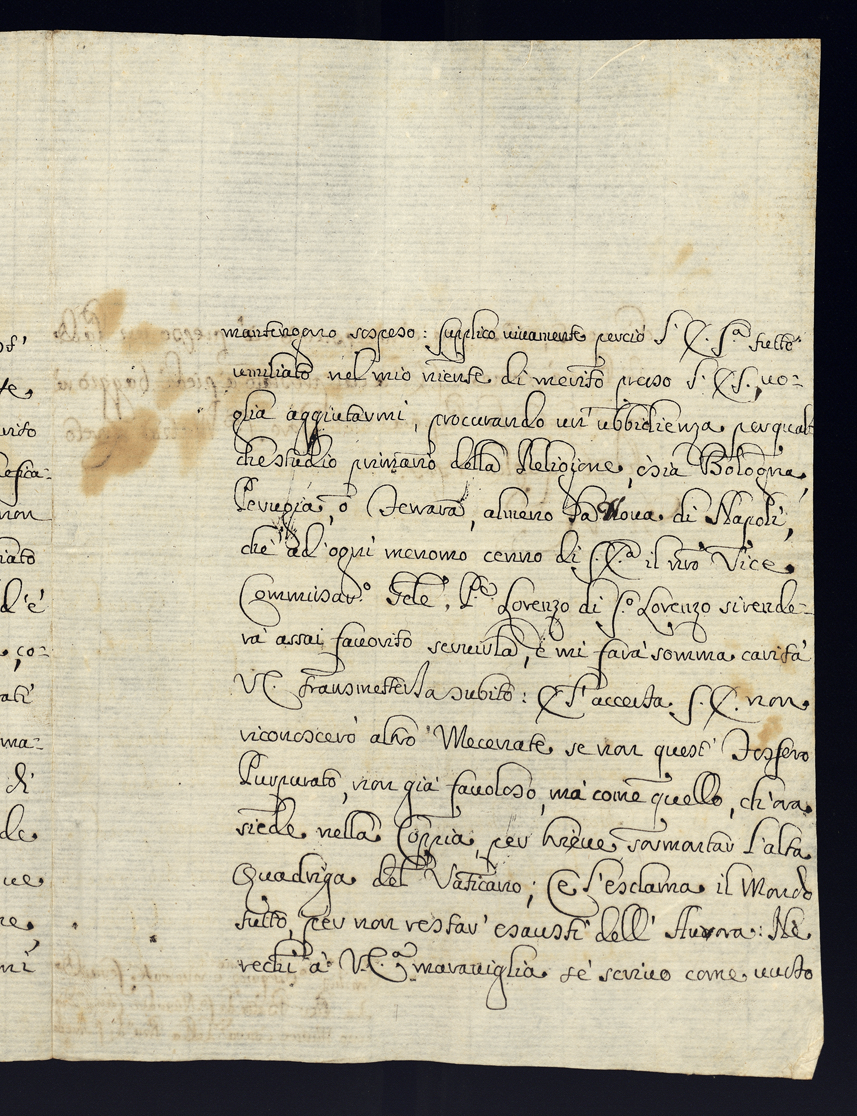 mantengono sospeso: supplico vivamente perciò S. E. S.ma tutto
umiliato nel mio niente di merito presso S. E. S., vo=
glia aggiutarmi, procurando un' ubbidienza per qual
che studio primario della Religione, ò sia Bologna,
Perugia, ò Ferrara, almeno la Nova di Napoli,
che ad' ogni menomo cenno di S. E.a il nro Vice
Commissar.o Gñle, P.re Lorenzo di S.o Lorenzo si rende=
rà assai favorito servirla, e mi farà somma carità
V. E. transmetterla subito: E s' accerta S. E. non
riconoscerò altro Mecenate se non quest' Fosfero
Purpurato, non già favoloso, mà come quello, ch' ora
siede nella Coppia, per breve sormontar l' alta
Quadriga del Vaticano; E l' esclama il Mondo
tutto, per non restar' esausti dell' Aurora: Nè
rechi à V. E.a maraviglia se scrivo come
of'
te
rito
efica=
non
iato
d' è
co=
rati
ma=
di
de
ue
re,
mi